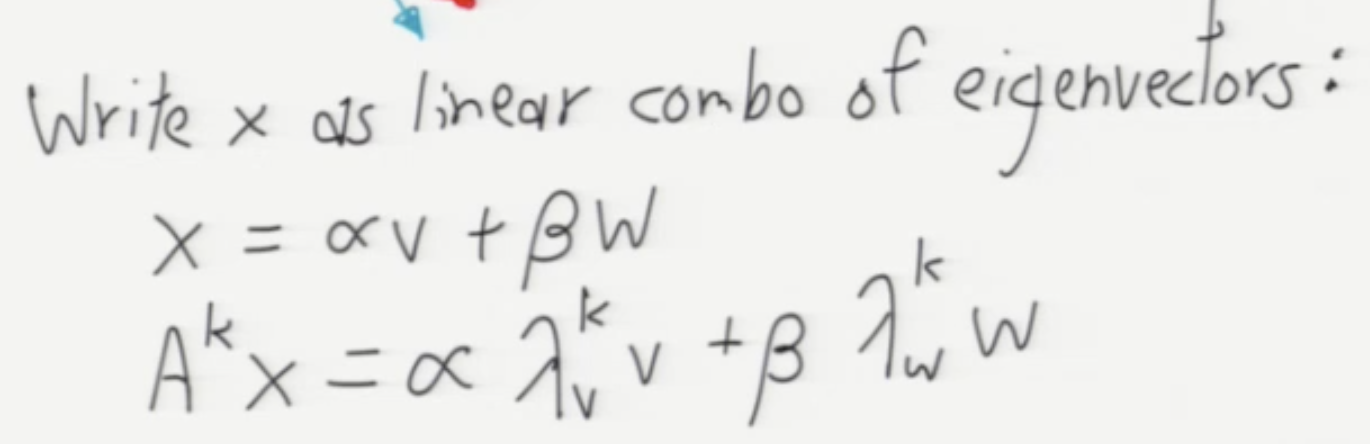 Write x as linear combo of eigenvectors:
x = αv + βw
A^k x = α λ_v^k v + β λ_w^k w